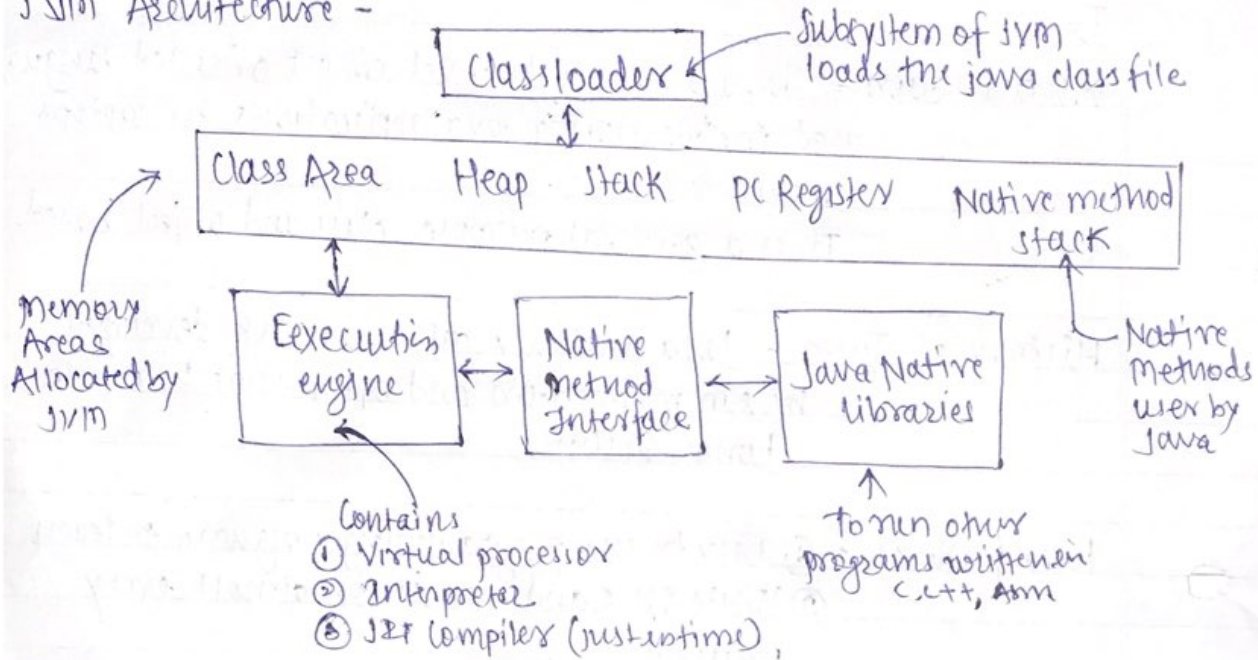 JVM Architecture -
Classloader
Subsystem of JVM
loads the java class file
Class Area Heap Stack PC Register Native method
stack
Memory
Areas
Allocated by
JVM
Eexecution
engine
Native
Method
Interface
Java Native
Libraries
Native
Methods
user by
Java
Contains
① Virtual processor
② Interpreter
③ JIT Compiler (just in time)
to run other
programs written in
C, C++, Asm